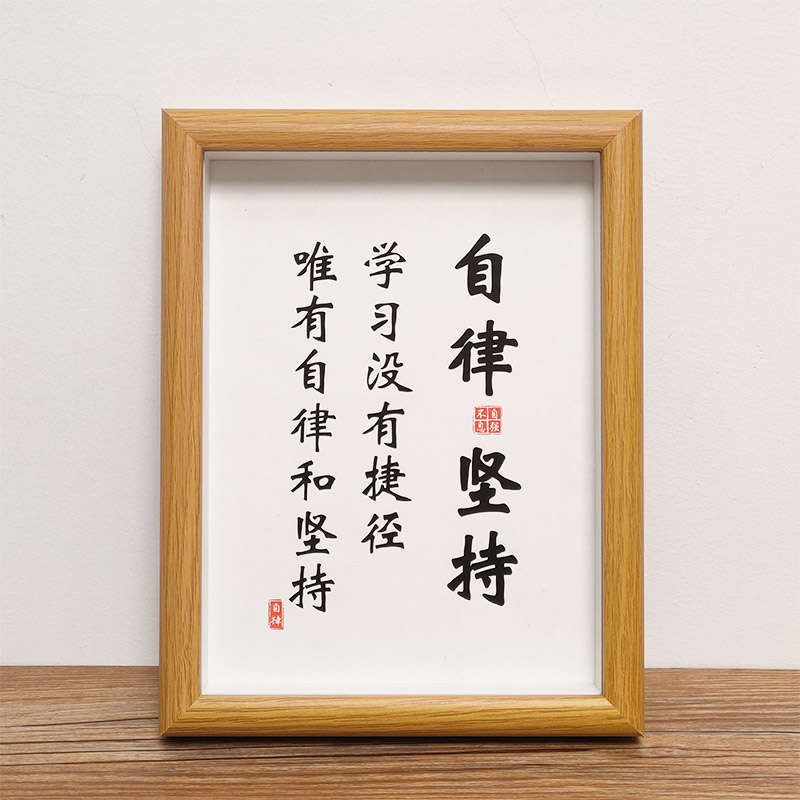 自律
自强不息
坚持
学习没有捷径
唯有自律和坚持
自律